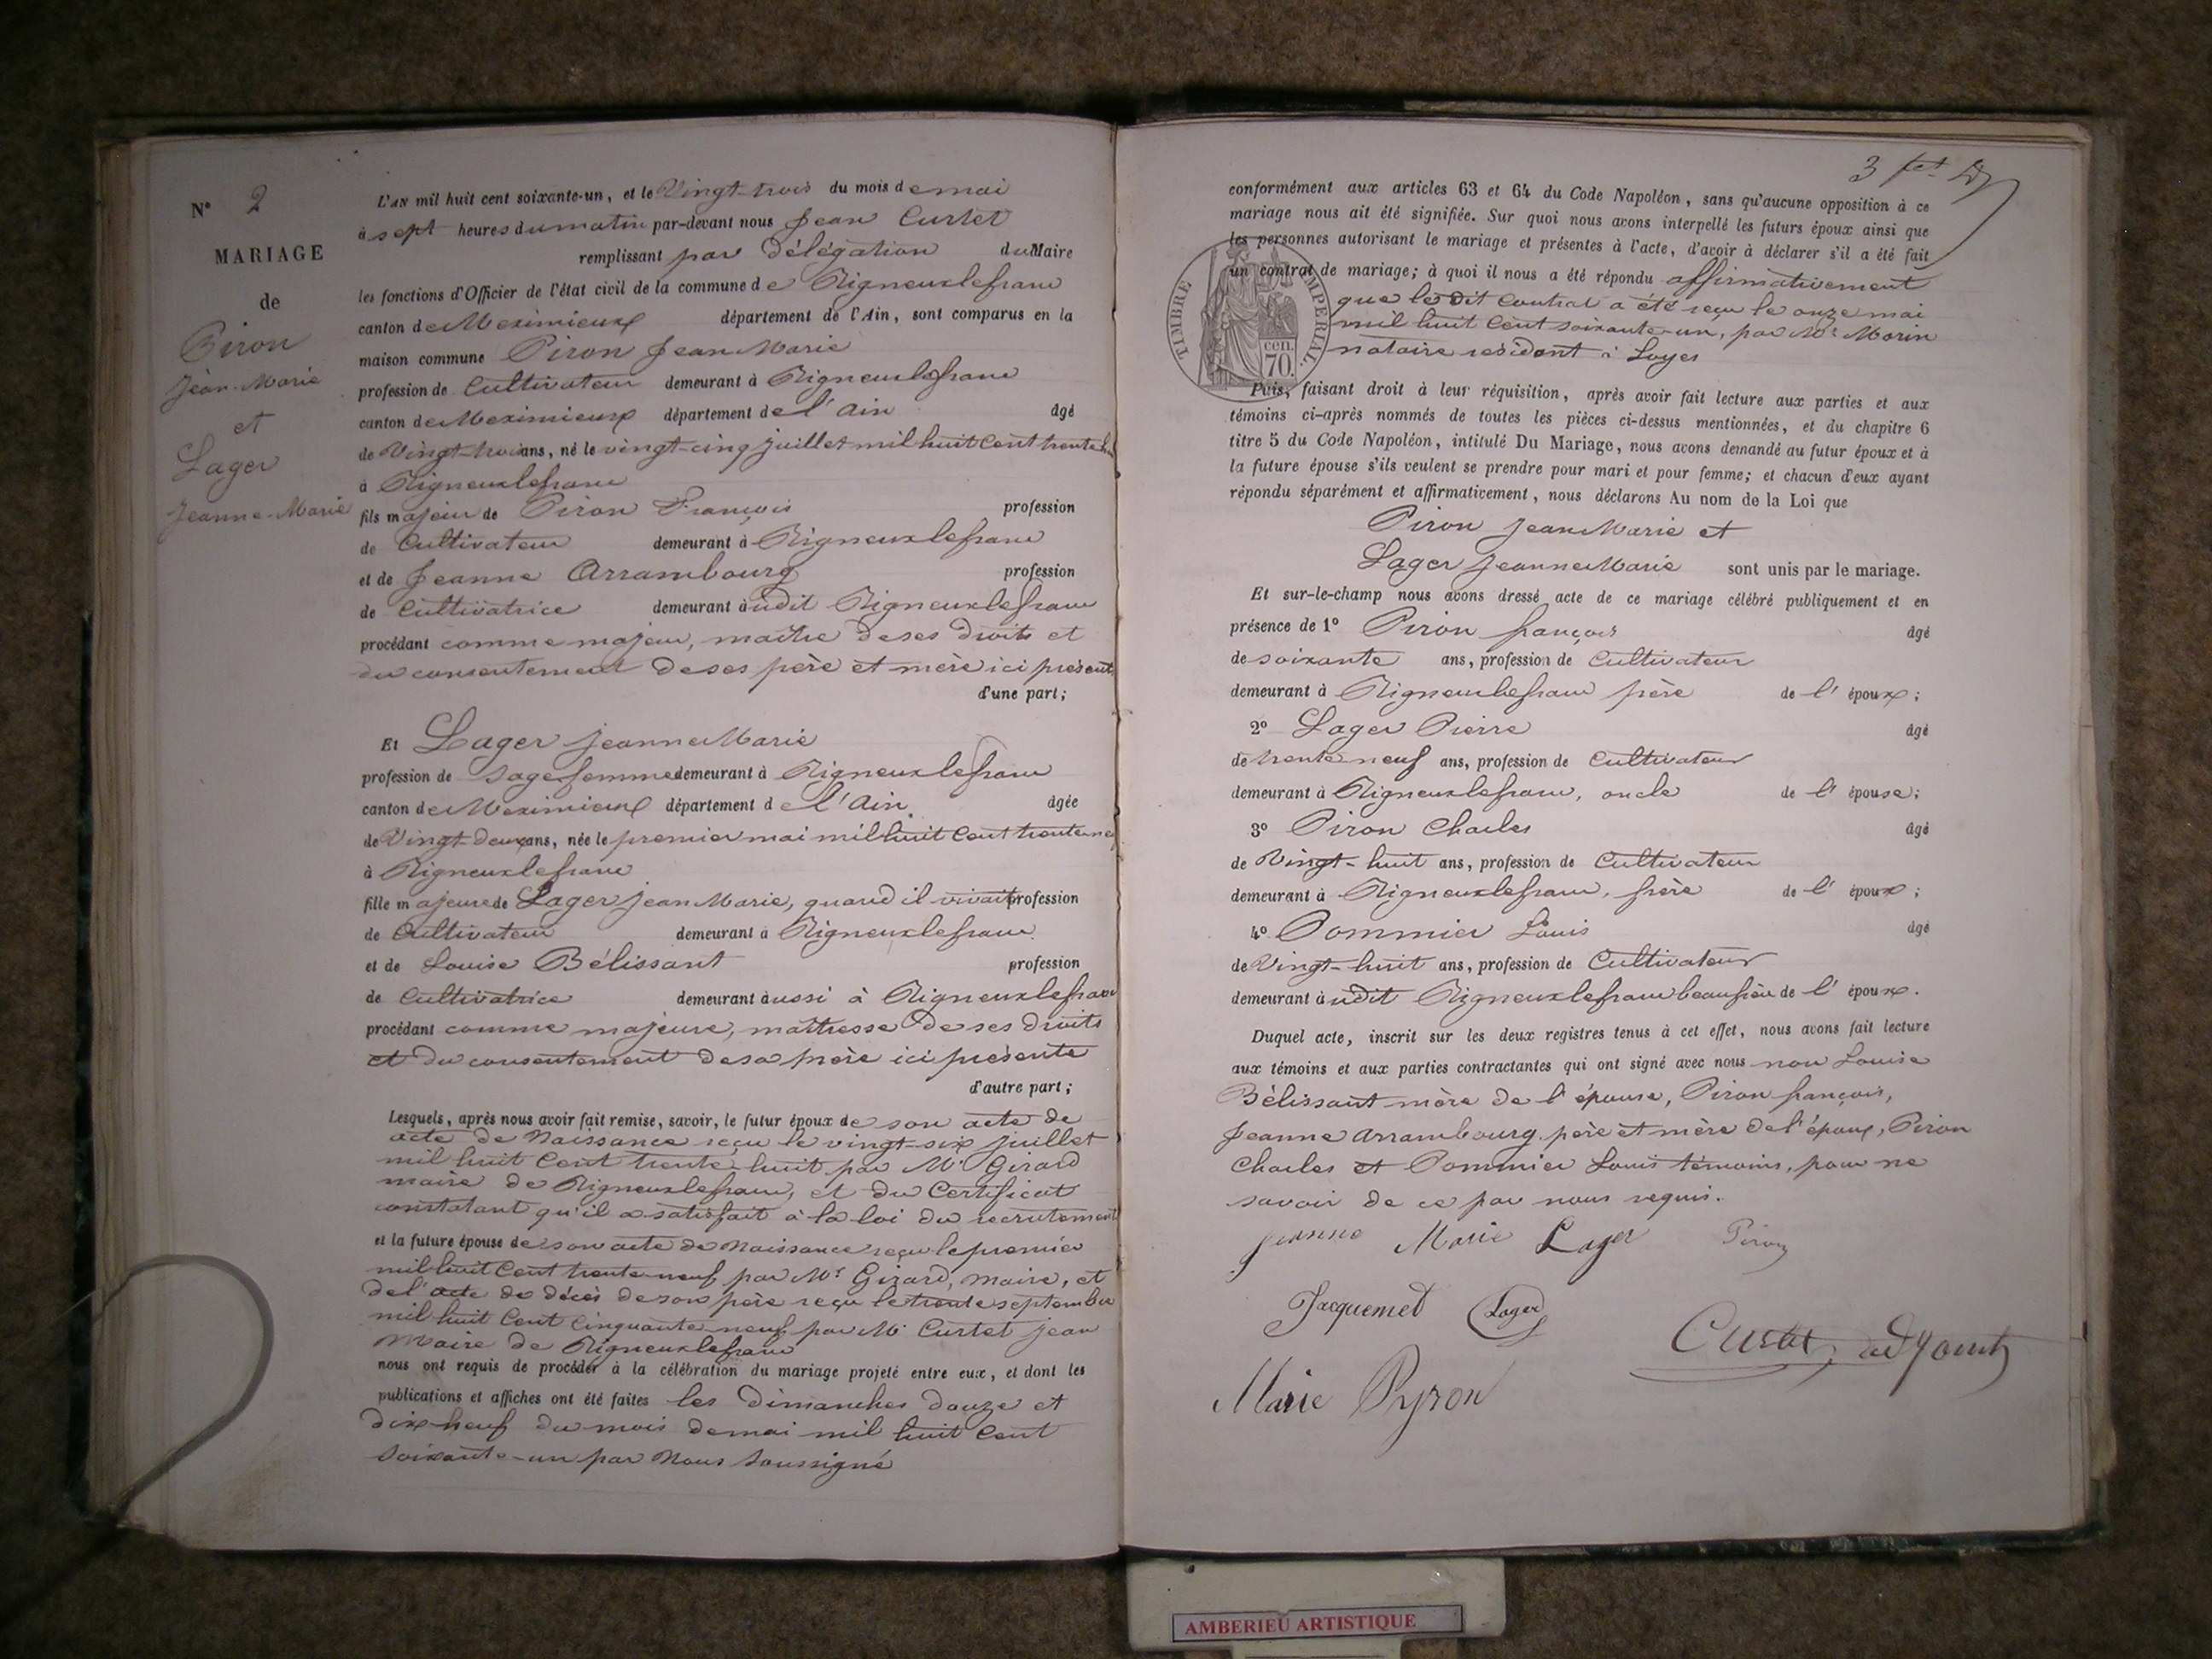 N° 2
MARIAGE
de
Piron
Jean-Marie
et
Lager
Jeanne-Marie
L'AN mil huit cent soixante-un, et le Vingt-trois du mois de mai
à sept heures du matin par-devant nous Jean Curtet
remplissant par délégation du Maire
les fonctions d'Officier de l'état civil de la commune de Rigneuxlefranc
canton de Meximieux département de l'Ain, sont comparus en la
maison commune Piron Jean Marie
profession de Cultivateur demeurant à Rigneuxlefranc
canton de Meximieux département de l'Ain âgé
de Vingt-trois ans, né le vingt-cinq juillet mil huit Cent trente huit
à Rigneuxlefranc
fils majeur de Piron François profession
de Cultivateur demeurant à Rigneuxlefranc
et de Jeanne Arrambourg profession
de Cultivatrice demeurant àudit Rigneuxlefranc
procédant comme majeur, maître de ses droits et
du consentement de ses père et mère ici présents
d'une part;
Et Lager Jeanne Marie
profession de Sage femme demeurant à Rigneuxlefranc
canton de Meximieux département de l'Ain âgée
de Vingt-deux ans, née le premier mai mil huit Cent trente neuf
à Rigneuxlefranc
fille majeure de Lager Jean Marie, quand il vivait profession
de Cultivateur demeurant à Rigneuxlefranc
et de Louise Bélissant profession
de Cultivatrice demeurant àussi à Rigneuxlefranc
procédant comme majeure, maîtresse de ses droits
et du consentement de sa mère ici présente
d'autre part;
Lesquels, après nous avoir fait remise, savoir, le futur époux de son acte de
acte de Naissance reçu le vingt-six juillet
mil huit Cent trente-huit par Mr Girard
maire de Rigneuxlefranc, et du Certificat
constatant qu'il a satisfait à la loi du recrutement
et la future épouse de son acte de Naissance reçu le premier
mil huit Cent trente-neuf par Mr Girard, maire, et
de l'acte de décès de son père reçu le trente septembre
mil huit Cent Cinquante-neuf par Mr Curtet Jean
Maire de Rigneuxlefranc
nous ont requis de procéder à la célébration du mariage projeté entre eux, et dont les
publications et affiches ont été faites les dimanches douze et
dix-neuf du mois de mai mil huit Cent
soixante-un par Nous Soussigné
3
conformément aux articles 63 et 64 du Code Napoléon, sans qu'aucune opposition à ce
mariage nous ait été signifiée. Sur quoi nous avons interpellé les futurs époux ainsi que
les personnes autorisant le mariage et présentes à l'acte, d'avoir à déclarer s'il a été fait
un contrat de mariage; à quoi il nous a été répondu affirmativement
que le dit Contrat a été reçu le onze mai
mil huit Cent soixante-un, par Mr Morin
notaire résidant à Loyes
TIMBRE IMPERIAL
cen.
70.
Puis, faisant droit à leur réquisition, après avoir fait lecture aux parties et aux
témoins ci-après nommés de toutes les pièces ci-dessus mentionnées, et du chapitre 6
titre 5 du Code Napoléon, intitulé Du Mariage, nous avons demandé au futur époux et à
la future épouse s'ils veulent se prendre pour mari et pour femme; et chacun d'eux ayant
répondu séparément et affirmativement, nous déclarons Au nom de la Loi que
Piron Jean Marie et
Lager Jeanne Marie sont unis par le mariage.
Et sur-le-champ nous avons dressé acte de ce mariage célébré publiquement et en
présence de 1° Piron françois âgé
de soixante ans, profession de Cultivateur
demeurant à Rigneuxlefranc père de l'époux;
2° Lager Pierre âgé
de trente neuf ans, profession de Cultivateur
demeurant à Rigneuxlefranc, oncle de l'épouse;
3° Piron Charles âgé
de Vingt-huit ans, profession de Cultivateur
demeurant à Rigneuxlefranc, frère de l'époux;
4° Pommier Louis âgé
de Vingt-huit ans, profession de Cultivateur
demeurant àudit Rigneuxlefranc beaufrère de l'époux.
Duquel acte, inscrit sur les deux registres tenus à cet effet, nous avons fait lecture
aux témoins et aux parties contractantes qui ont signé avec nous non Louise
Bélissant mère de l'épouse, Piron françois,
Jeanne Arrambourg père et mère de l'époux, Piron
Charles et Pommier Louis témoins, pour ne
savoir de ce par nous requis.
Jeanne Marie Lager Piron
Jacquemet Lager
Curtet, adjoint
Marie Pyron
AMBERIEU ARTISTIQUE